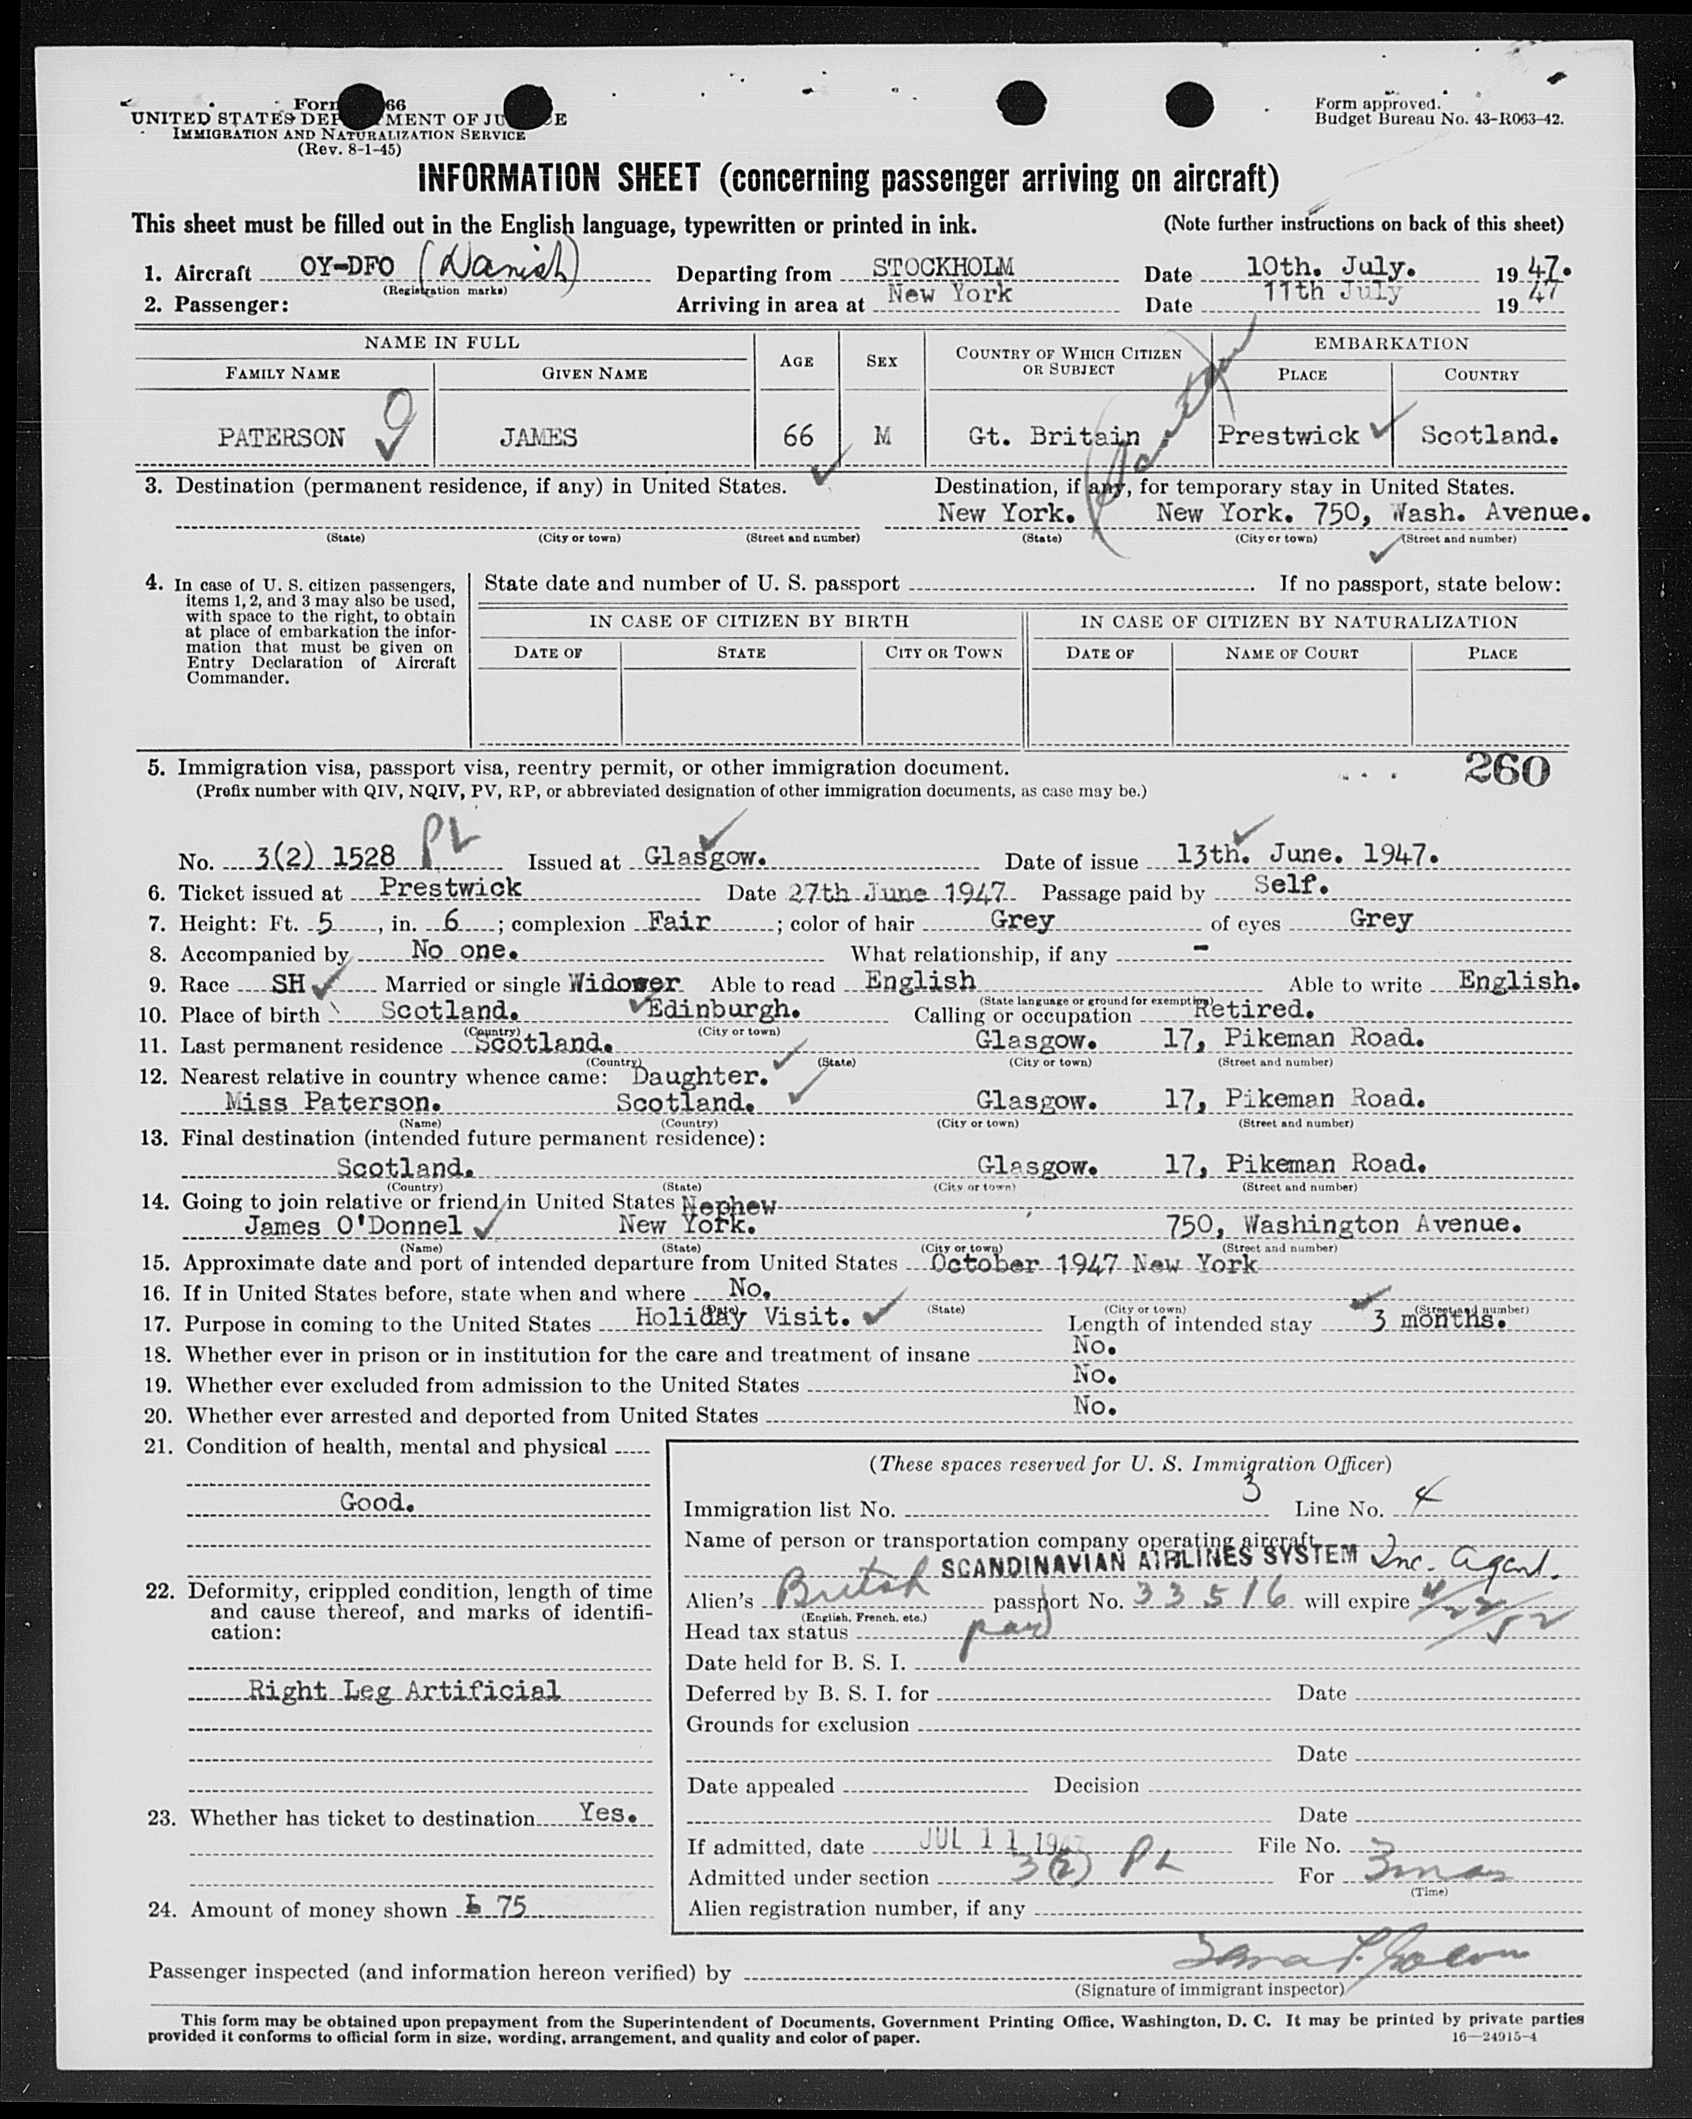 Form 66
UNITED STATES DEP MENT OF JU E
IMMIGRATION AND NATURALIZATION SERVICE
(Rev. 8-1-45)
Form approved.
Budget Bureau No. 43-R063-42.
INFORMATION SHEET (concerning passenger arriving on aircraft)
This sheet must be filled out in the English language, typewritten or printed in ink. (Note further instructions on back of this sheet)
1. Aircraft OY-DFO (Danish) Departing from STOCKHOLM Date 10th. July. 19 47.
(Registration marks)
2. Passenger: Arriving in area at New York Date 11th July 19 47
NAME IN FULL AGE SEX COUNTRY OF WHICH CITIZEN OR SUBJECT EMBARKATION
FAMILY NAME GIVEN NAME PLACE COUNTRY
PATERSON JAMES 66 M Gt. Britain Prestwick Scotland.
3. Destination (permanent residence, if any) in United States. Destination, if any, for temporary stay in United States.
New York. New York. 750, Wash. Avenue.
(State) (City or town) (Street and number) (State) (City or town) (Street and number)
4. In case of U. S. citizen passengers, items 1, 2, and 3 may also be used, with space to the right, to obtain at place of embarkation the information that must be given on Entry Declaration of Aircraft Commander.
State date and number of U. S. passport . If no passport, state below:
IN CASE OF CITIZEN BY BIRTH IN CASE OF CITIZEN BY NATURALIZATION
DATE OF STATE CITY OR TOWN DATE OF NAME OF COURT PLACE
5. Immigration visa, passport visa, reentry permit, or other immigration document. 260
(Prefix number with QIV, NQIV, PV, RP, or abbreviated designation of other immigration documents, as case may be.)
No. 3(2) 1528 PL Issued at Glasgow. Date of issue 13th. June. 1947.
6. Ticket issued at Prestwick Date 27th June 1947 Passage paid by Self.
7. Height: Ft. 5, in. 6; complexion Fair; color of hair Grey of eyes Grey
8. Accompanied by No one. What relationship, if any -
9. Race SH Married or single Widower Able to read English Able to write English.
(State language or ground for exemption)
10. Place of birth Scotland. Edinburgh. Calling or occupation Retired.
(Country) (City or town)
11. Last permanent residence Scotland. Glasgow. 17, Pikeman Road.
(Country) (State) (City or town) (Street and number)
12. Nearest relative in country whence came: Daughter.
Miss Paterson. Scotland. Glasgow. 17, Pikeman Road.
(Name) (Country) (City or town) (Street and number)
13. Final destination (intended future permanent residence):
Scotland. Glasgow. 17, Pikeman Road.
(Country) (State) (City or town) (Street and number)
14. Going to join relative or friend in United States Nephew
James O'Donnel New York. 750, Washington Avenue.
(Name) (State) (City or town) (Street and number)
15. Approximate date and port of intended departure from United States October 1947 New York
16. If in United States before, state when and where No.
(Date) (State) (City or town) (Street and number)
17. Purpose in coming to the United States Holiday Visit. Length of intended stay 3 months.
18. Whether ever in prison or in institution for the care and treatment of insane No.
19. Whether ever excluded from admission to the United States No.
20. Whether ever arrested and deported from United States No.
21. Condition of health, mental and physical
Good.
22. Deformity, crippled condition, length of time and cause thereof, and marks of identification:
Right Leg Artificial
23. Whether has ticket to destination Yes.
24. Amount of money shown £ 75
(These spaces reserved for U. S. Immigration Officer)
Immigration list No. 3 Line No. 4
Name of person or transportation company operating aircraft
SCANDINAVIAN AIRLINES SYSTEM Inc. Agent.
Alien's British passport No. 33516 will expire 4/22/52
(English, French, etc.)
Head tax status paid
Date held for B. S. I.
Deferred by B. S. I. for Date
Grounds for exclusion
Date
Date appealed Decision
Date
If admitted, date JUL 11 1947 File No.
Admitted under section 3(2) PL For 3 mos
(Time)
Alien registration number, if any
Passenger inspected (and information hereon verified) by
(Signature of immigrant inspector)
This form may be obtained upon prepayment from the Superintendent of Documents, Government Printing Office, Washington, D. C. It may be printed by private parties
provided it conforms to official form in size, wording, arrangement, and quality and color of paper. 16—24915-4